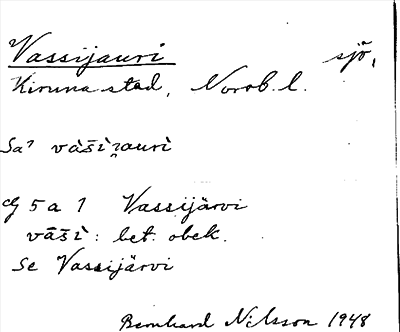 Vassijauri sjö,
Kiruna stad, Norrb. l.
Sa7 vàši̇̀ ʒauri
G 5 a 1 Vassijärvi
vàši̇̀ : bet. obek.
Se Vassijärvi
Bernhard Nilsson 1948